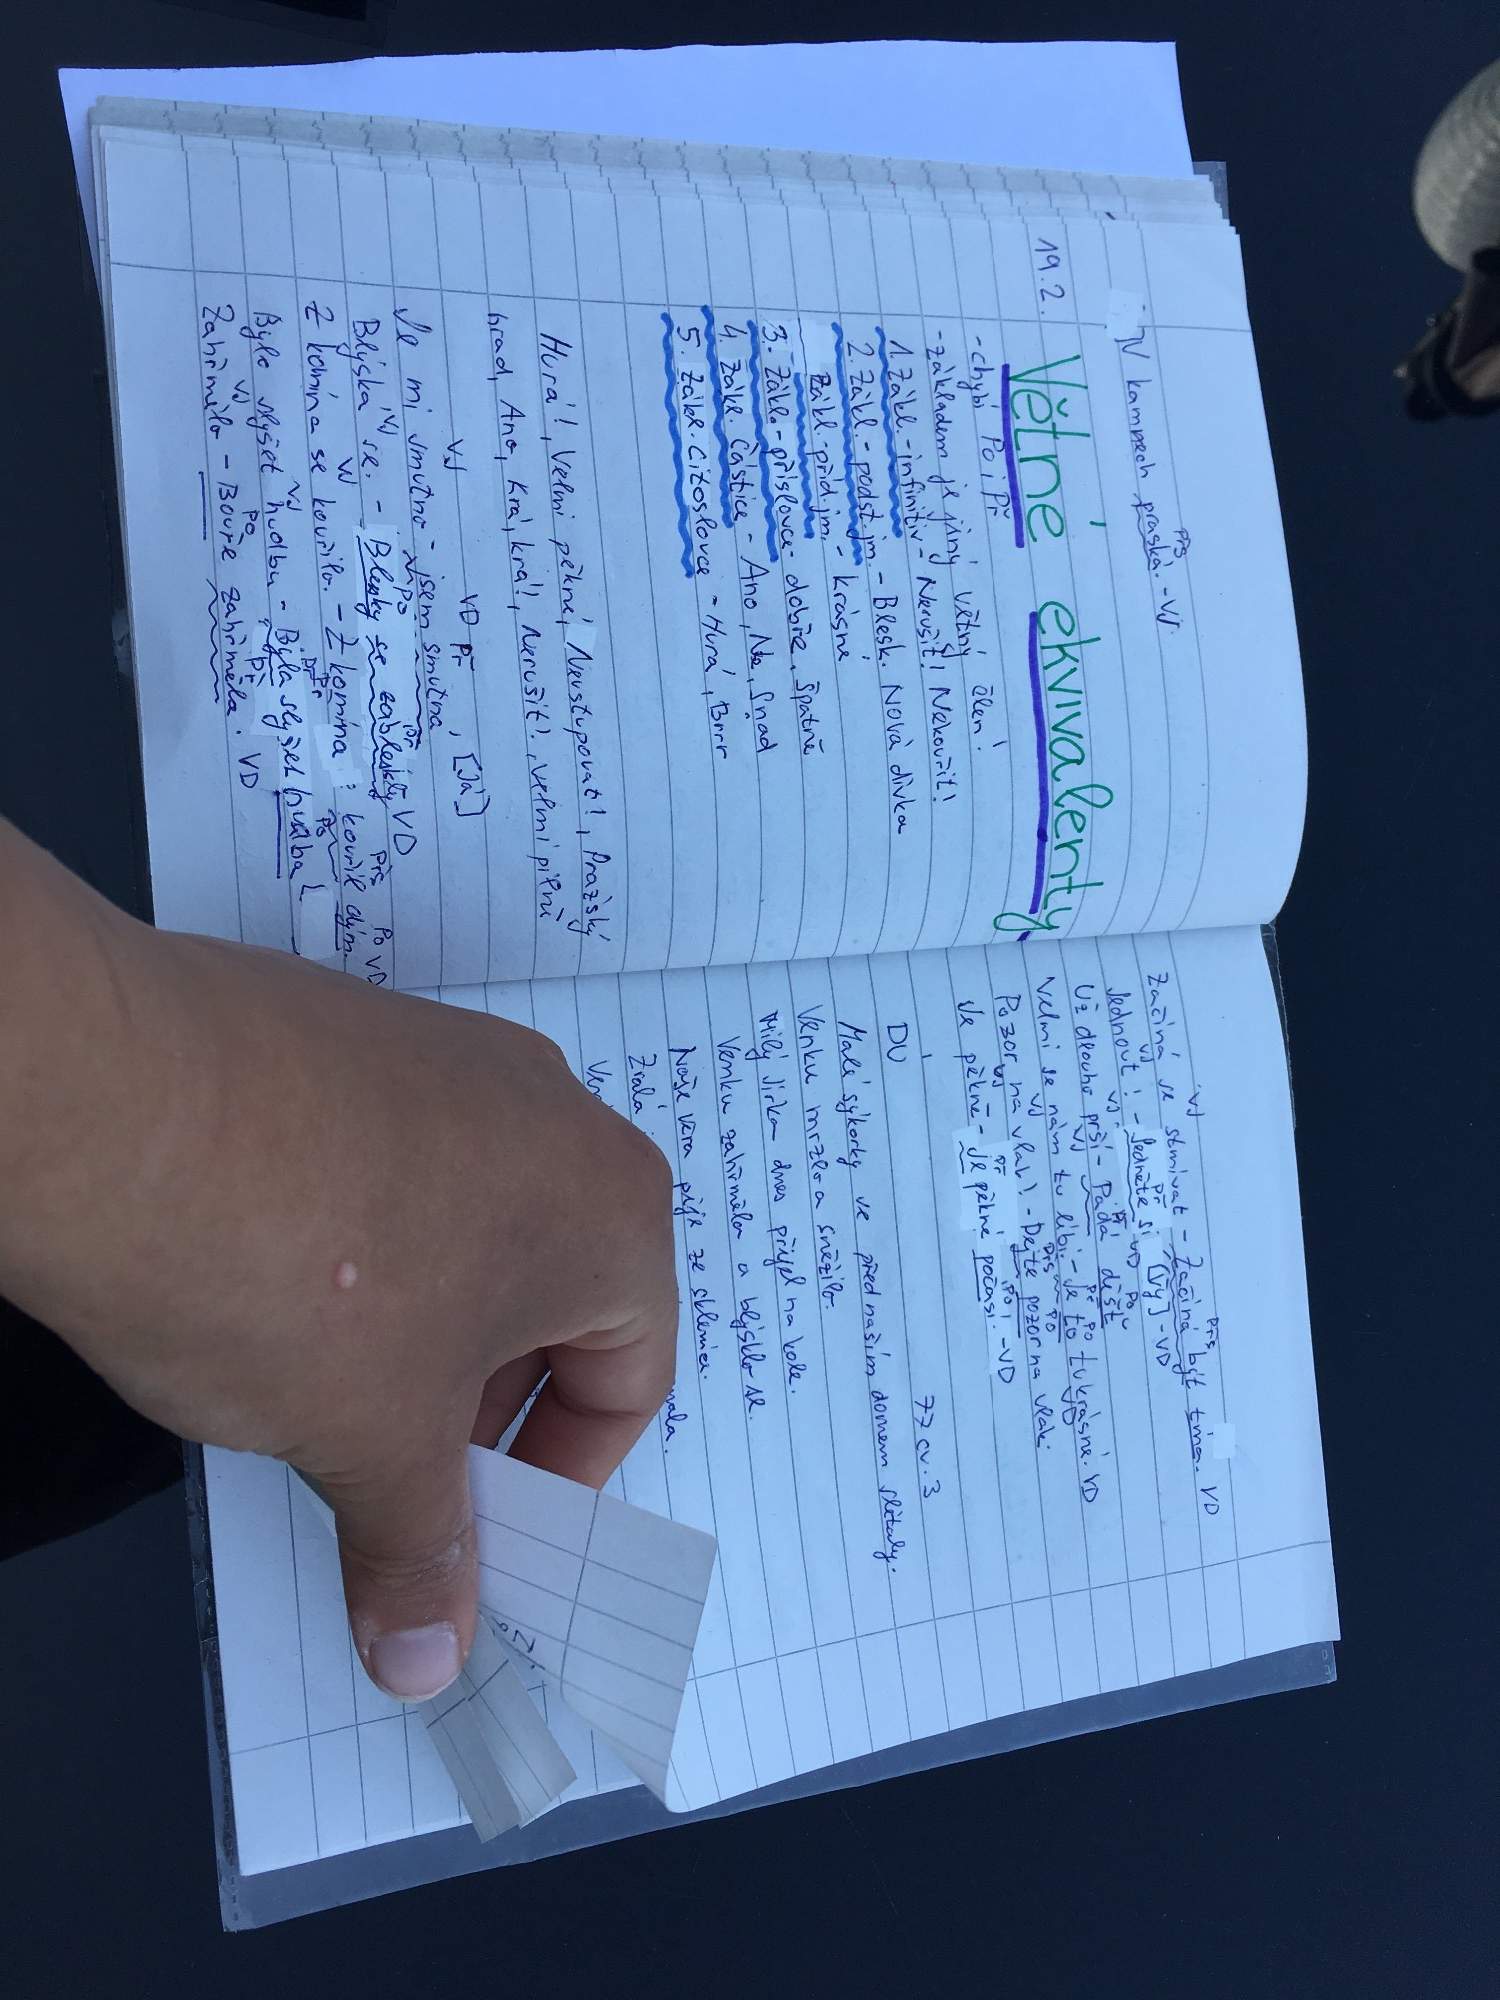 V kamnech praská. - VJ
Přs
19.2.
Větné ekvivalenty
- chybí Po i Př
- základem je jiný větný člen!
1. Zákl. - infinitiv - Nerušit! Nekouřit!
2. Zákl. - podst. jm. - Blesk. Nová dívka
Zákl. - příd. jm. - krásné
3. Zákl. - příslovce - dobře, špatně
4. Zákl. částice - Ano, Ne, Snad
5. Zákl. citoslovce - Hurá, Brrr
Hurá!, Velmi pěkné, Nevstupovat!, Pražský
hrad, Ano, Krá, krá!, Nerušit!, velmi pilně
VJ VD Př
Je mi smutno - jsem smutná, [Já]
VJ Po Př
Blýská se. - Blesky se zableskly VD
VJ Př Přs Po
Z komína se kouřilo. - Z komína kouřil dým. VD
VJ Př Po
Bylo slyšet hudbu - Byla slyšet hudba
VJ Po Př
Zahřmělo - Bouře zahřměla. VD
VJ Přs
Začíná se stmívat - Začíná být tma. VD
VJ Př
Jednout! - Jedněte si [Vy] - VD
VJ Př VD Po
Už dlouho prší - Padá déšť
VJ Př Po
Velmi se nám tu líbí. - Je to tu krásné. VD
Pozor na vlak! - Dejte pozor na vlak.
VJ Př Po
Je pěkně - Je pěkné počasí. - VD
DÚ 77 cv. 3
Malé sýkorky ve před naším domem slétaly.
Venku mrzlo a sněžilo.
Milý Jirka dnes přijel na kole.
Venku zahřmělo a blýsklo se.
Naše Věra pije ze sklenice.
Zralá